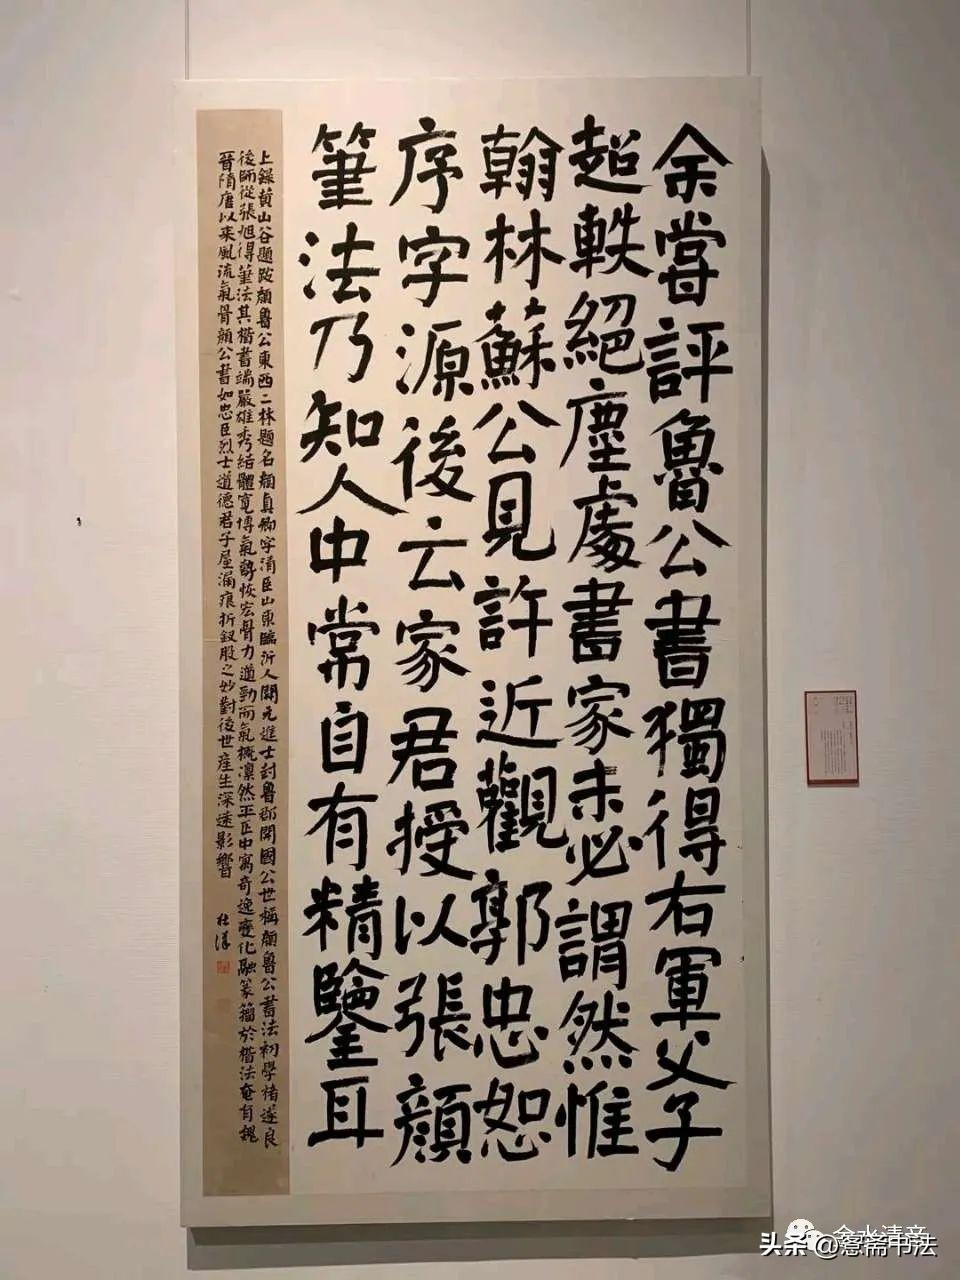 余嘗評魯公書獨得右軍父子
超軼絕塵處書家未必謂然惟
翰林蘇公見許近觀郭忠恕
序字源後云家君授以張顏
筆法乃知人中常自有精鑒耳
上錄黃山谷題跋顏魯公東西二林題名顏真卿字清臣山東臨沂人開元進士封魯郡開國公世稱顏魯公書法初學褚遂良
後師從張旭得筆法其楷書端嚴雄秀結體寬博氣勢恢宏骨力遒勁而氣概凜然平正中寓奇逸變化融篆籀於楷法奄有魏
晉隋唐以來風流氣骨顏公書如忠臣烈士道德君子屋漏痕折釵股之妙對後世產生深遠影響
杜
头条@愙斋书法